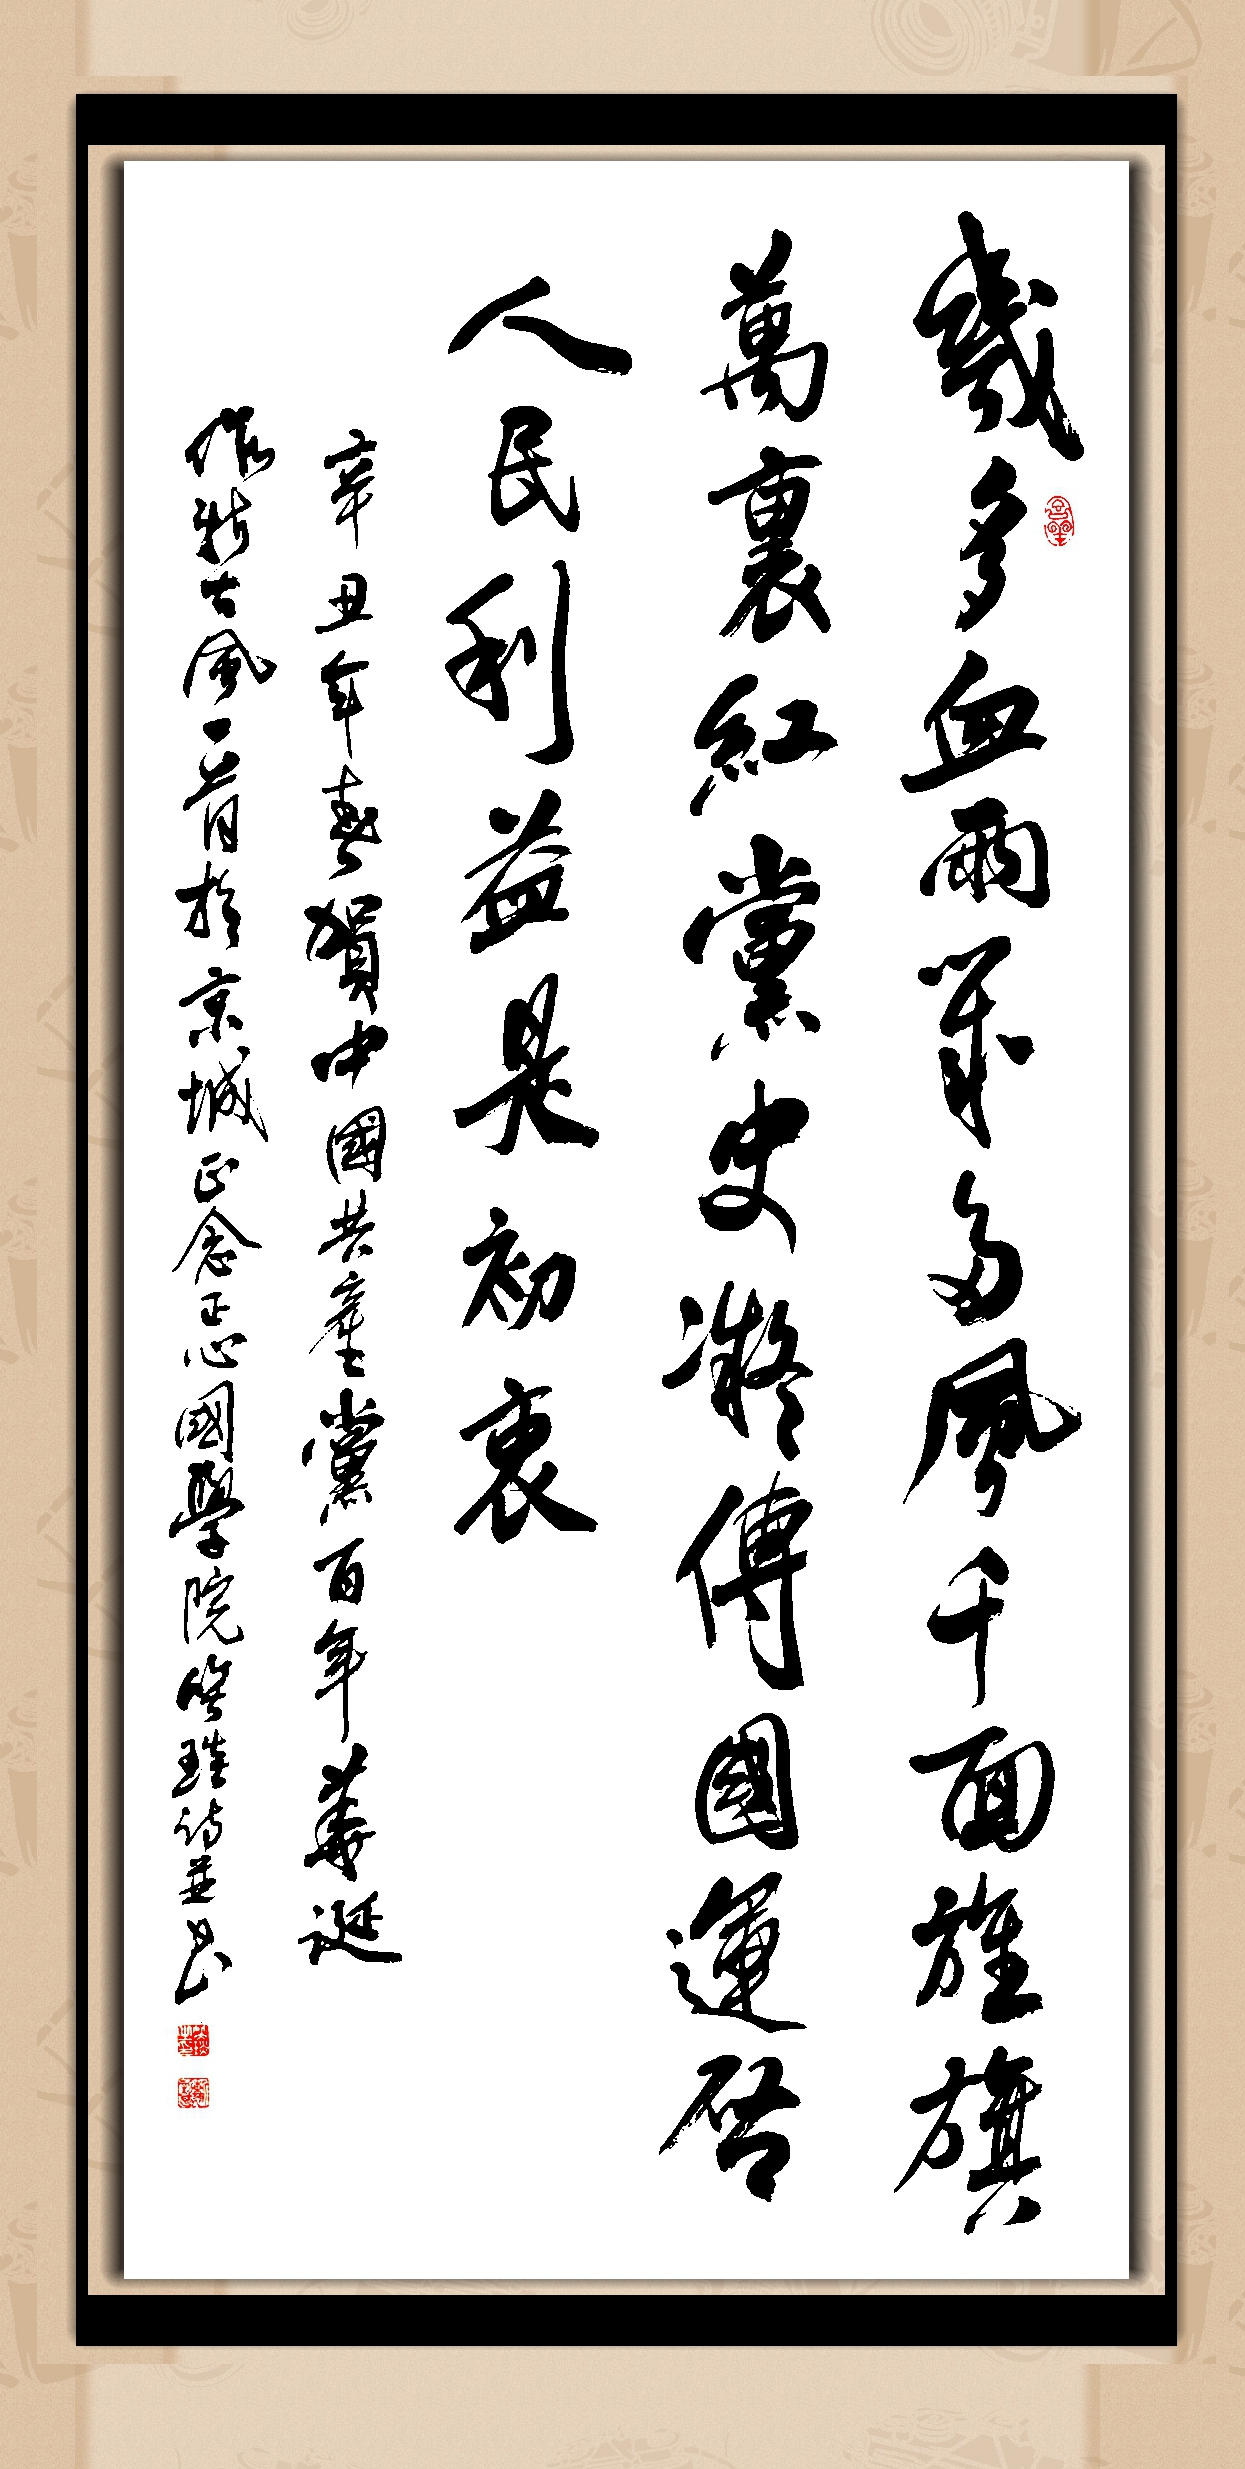 幾多血雨幾多風千面旌旗
萬裏紅黨史凝傳國運啓
人民利益是初衷
辛丑年春賀中國共產黨百年華誕
作新古風一首於京城正念正心國學院
詩並書